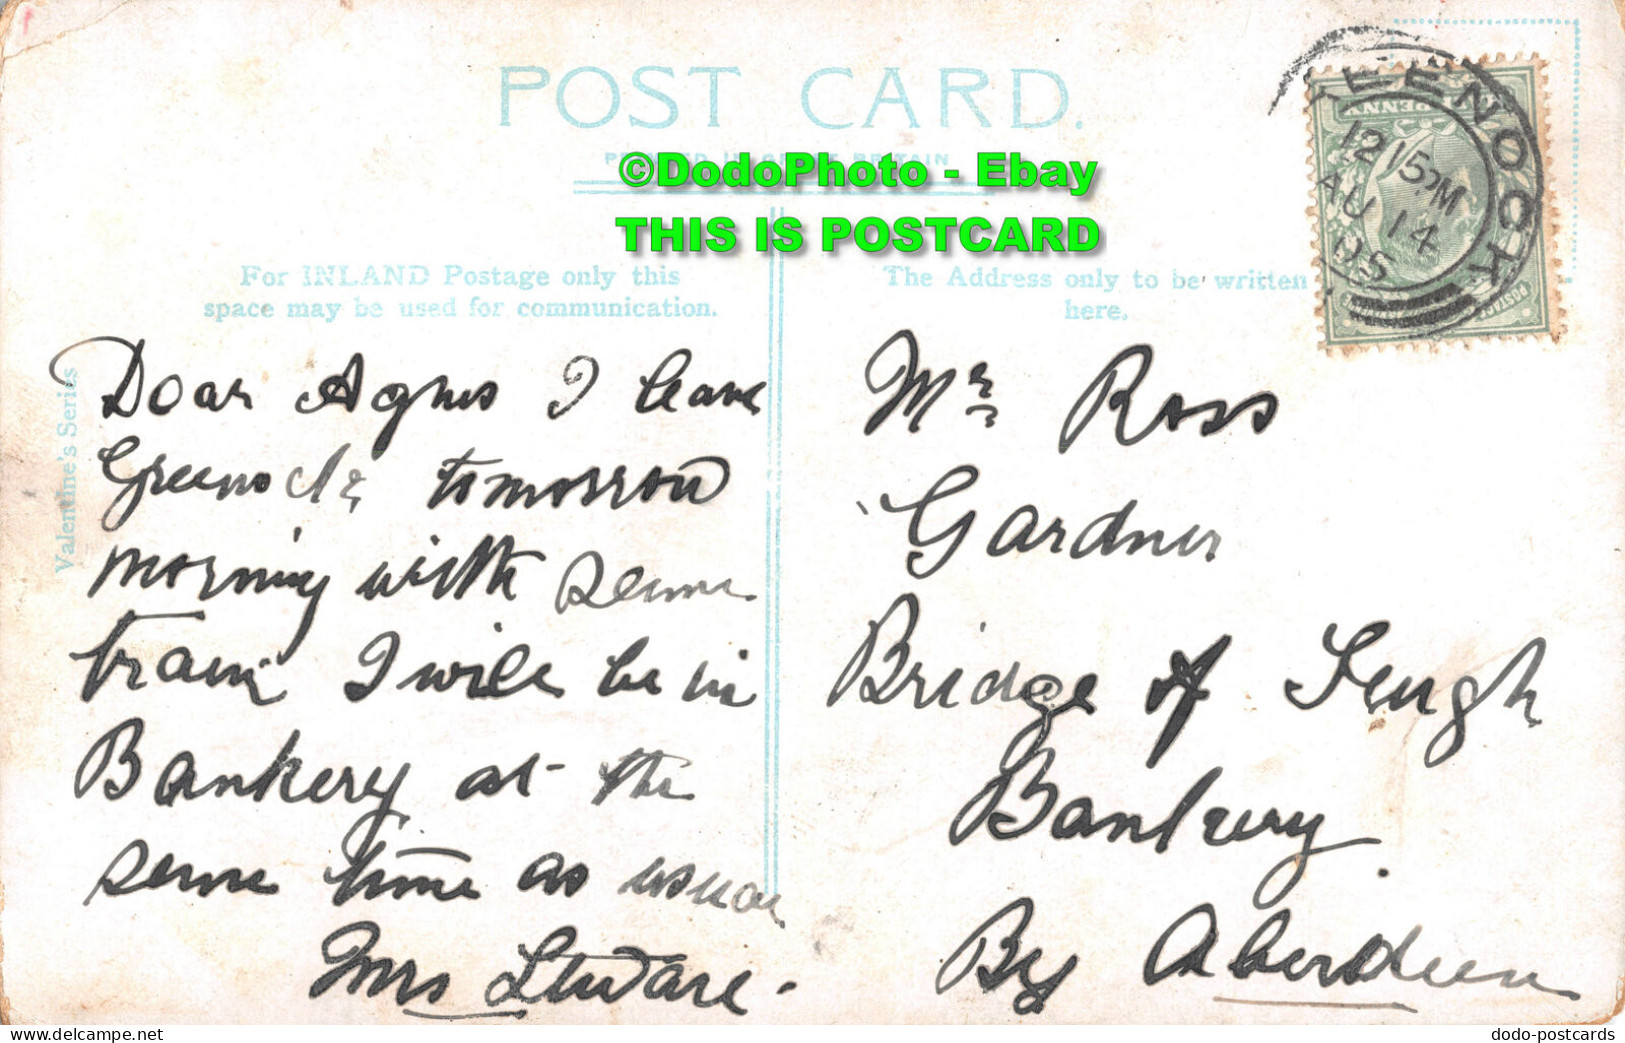 POST CARD.
PRINTED IN GREAT BRITAIN
©DodoPhoto - Ebay
THIS IS POSTCARD
For INLAND Postage only this
space may be used for communication.
The Address only to be written
here.
Valentine's Series
GREENOCK
12 15PM
AU 14
05
Dear Agnes I leave
Greenock tomorrow
morning with seme
train I will be in
Bankery at the
seme time as usual
Mrs
Mr Ross
Gardner
Bridge of Feugh
Bankery
By Aberdeen
dodo-postcards